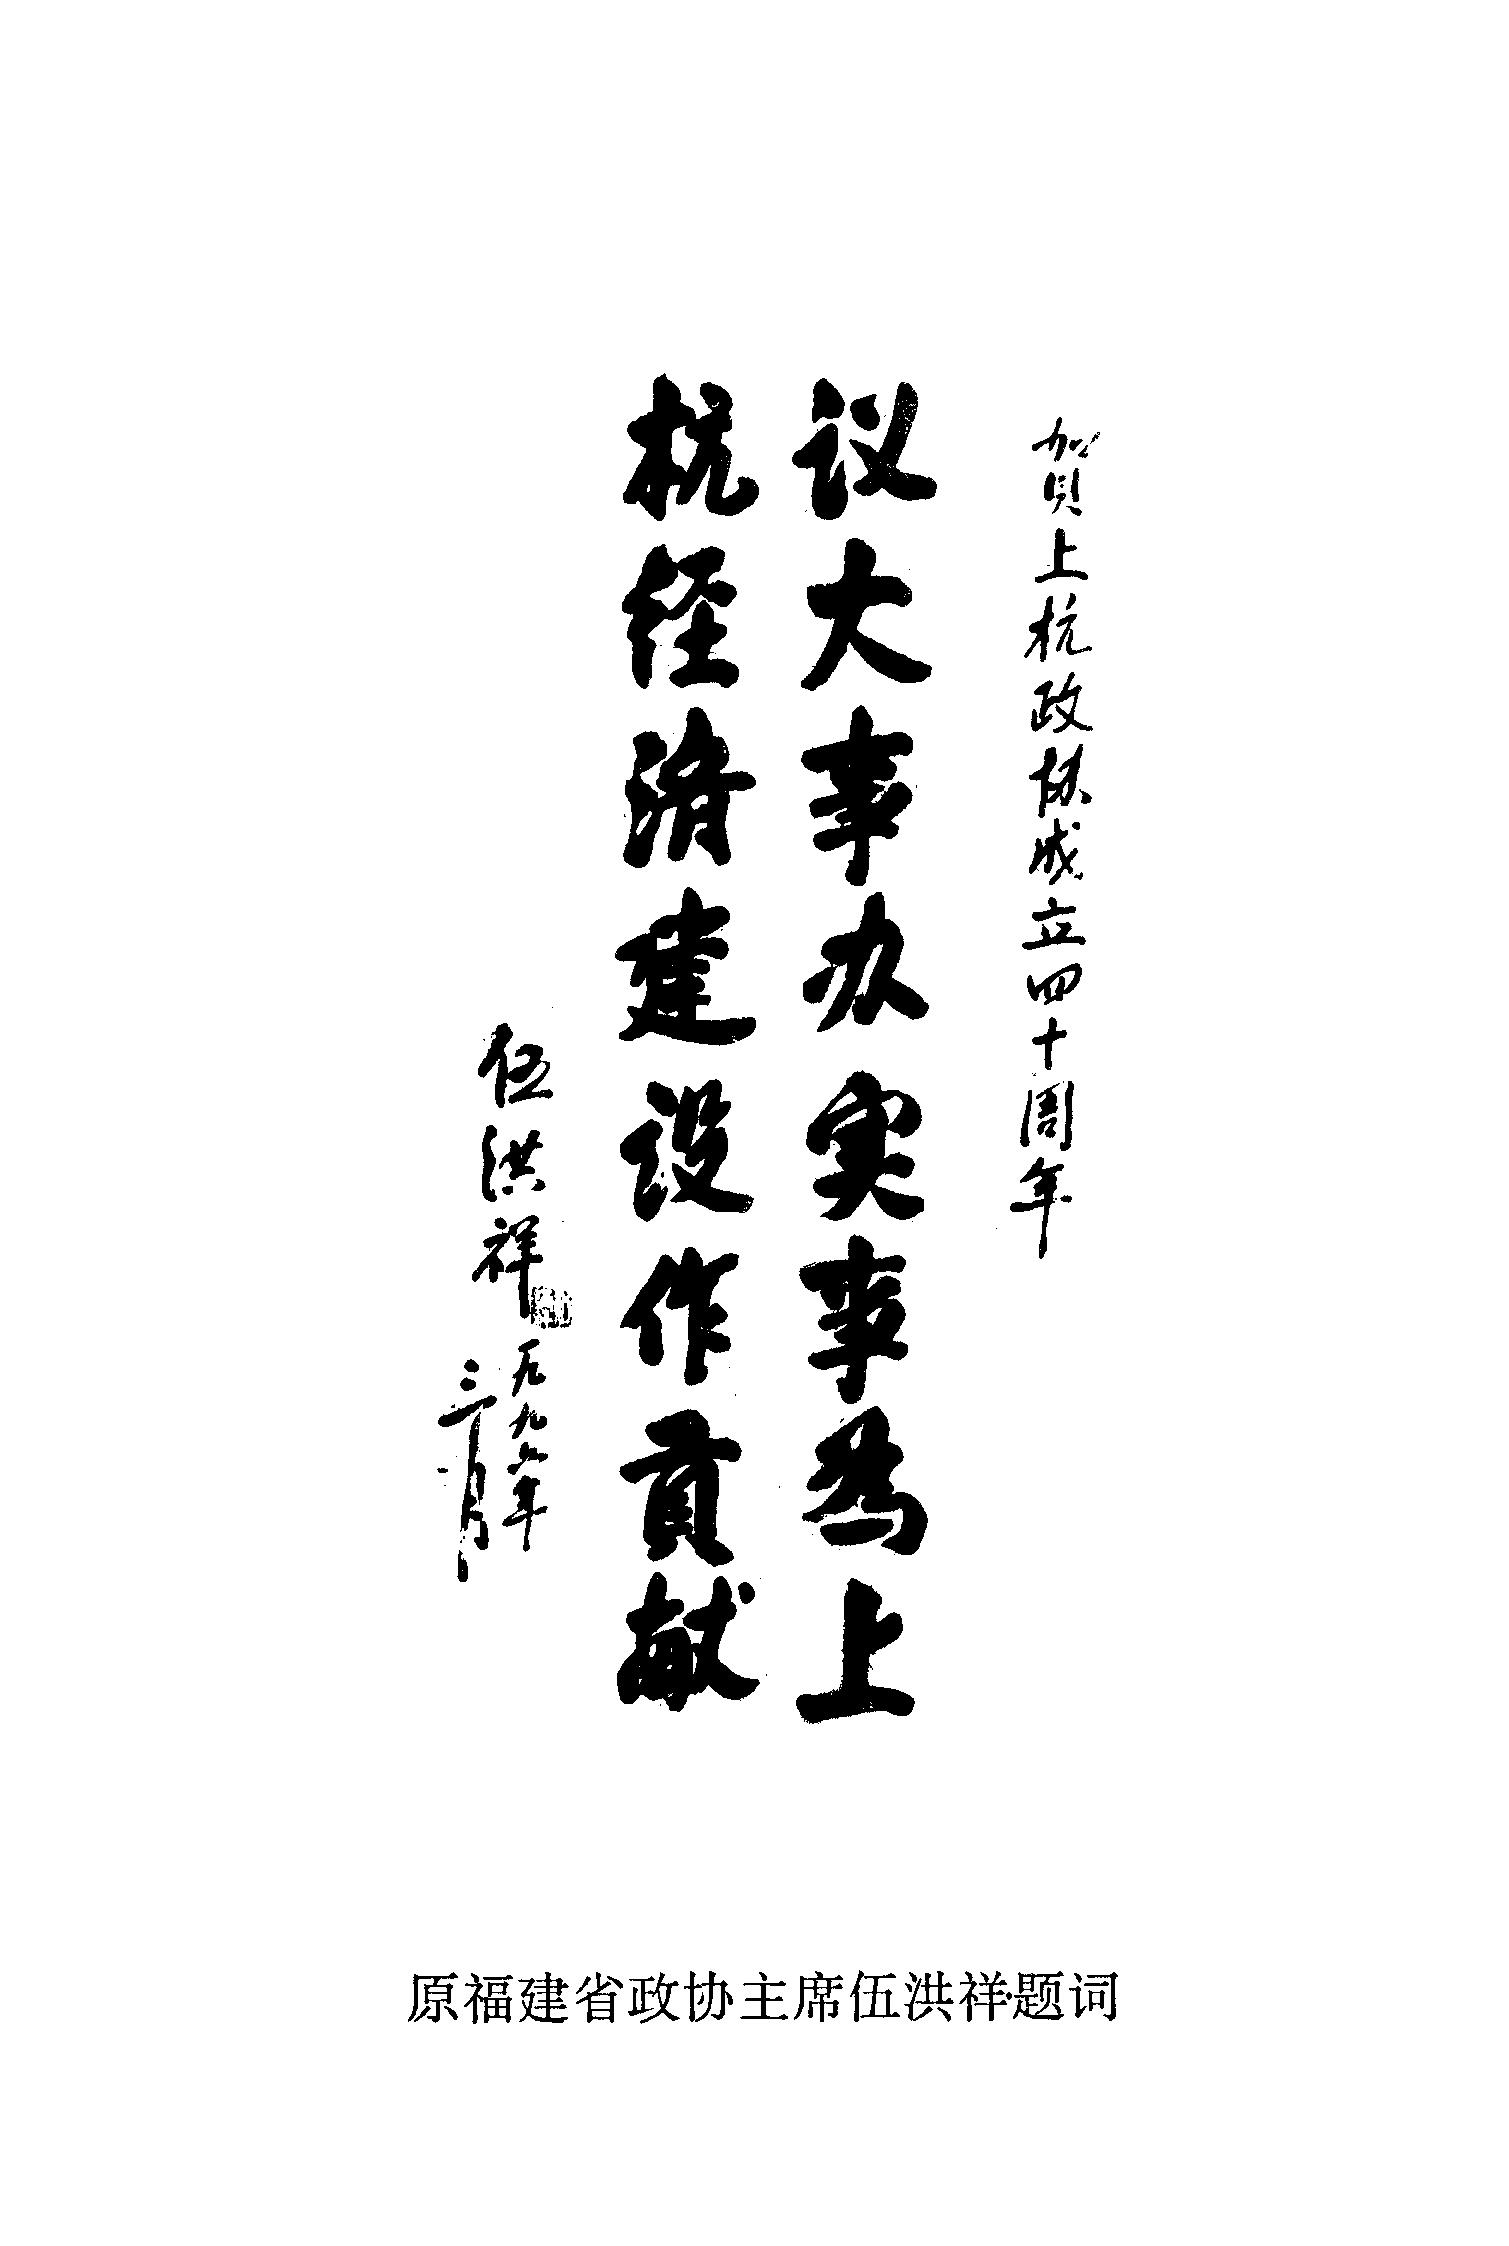 賀上杭政协成立四十周年
议大事办实事為上
杭经济建设作贡献
伍洪祥
一九九六年
三月
原福建省政协主席伍洪祥题词